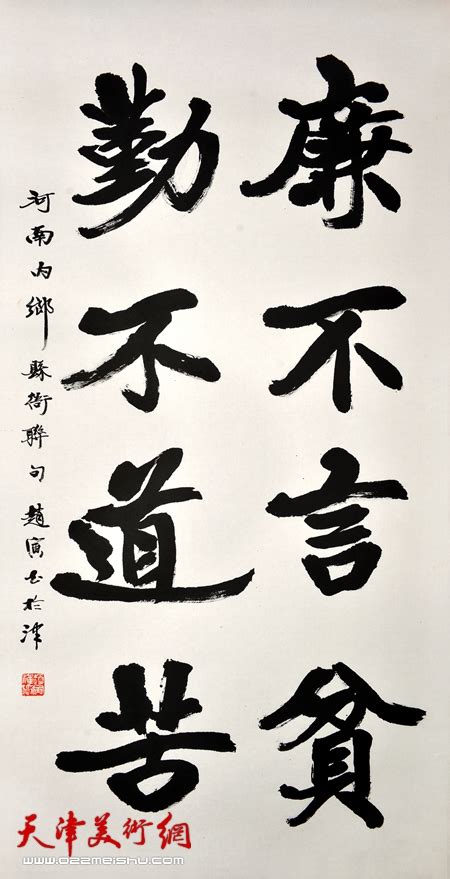 廉不言貧
勤不道苦
河南内鄉縣衙聯句 趙寅书於津
天津美術網
www.022meishu.com